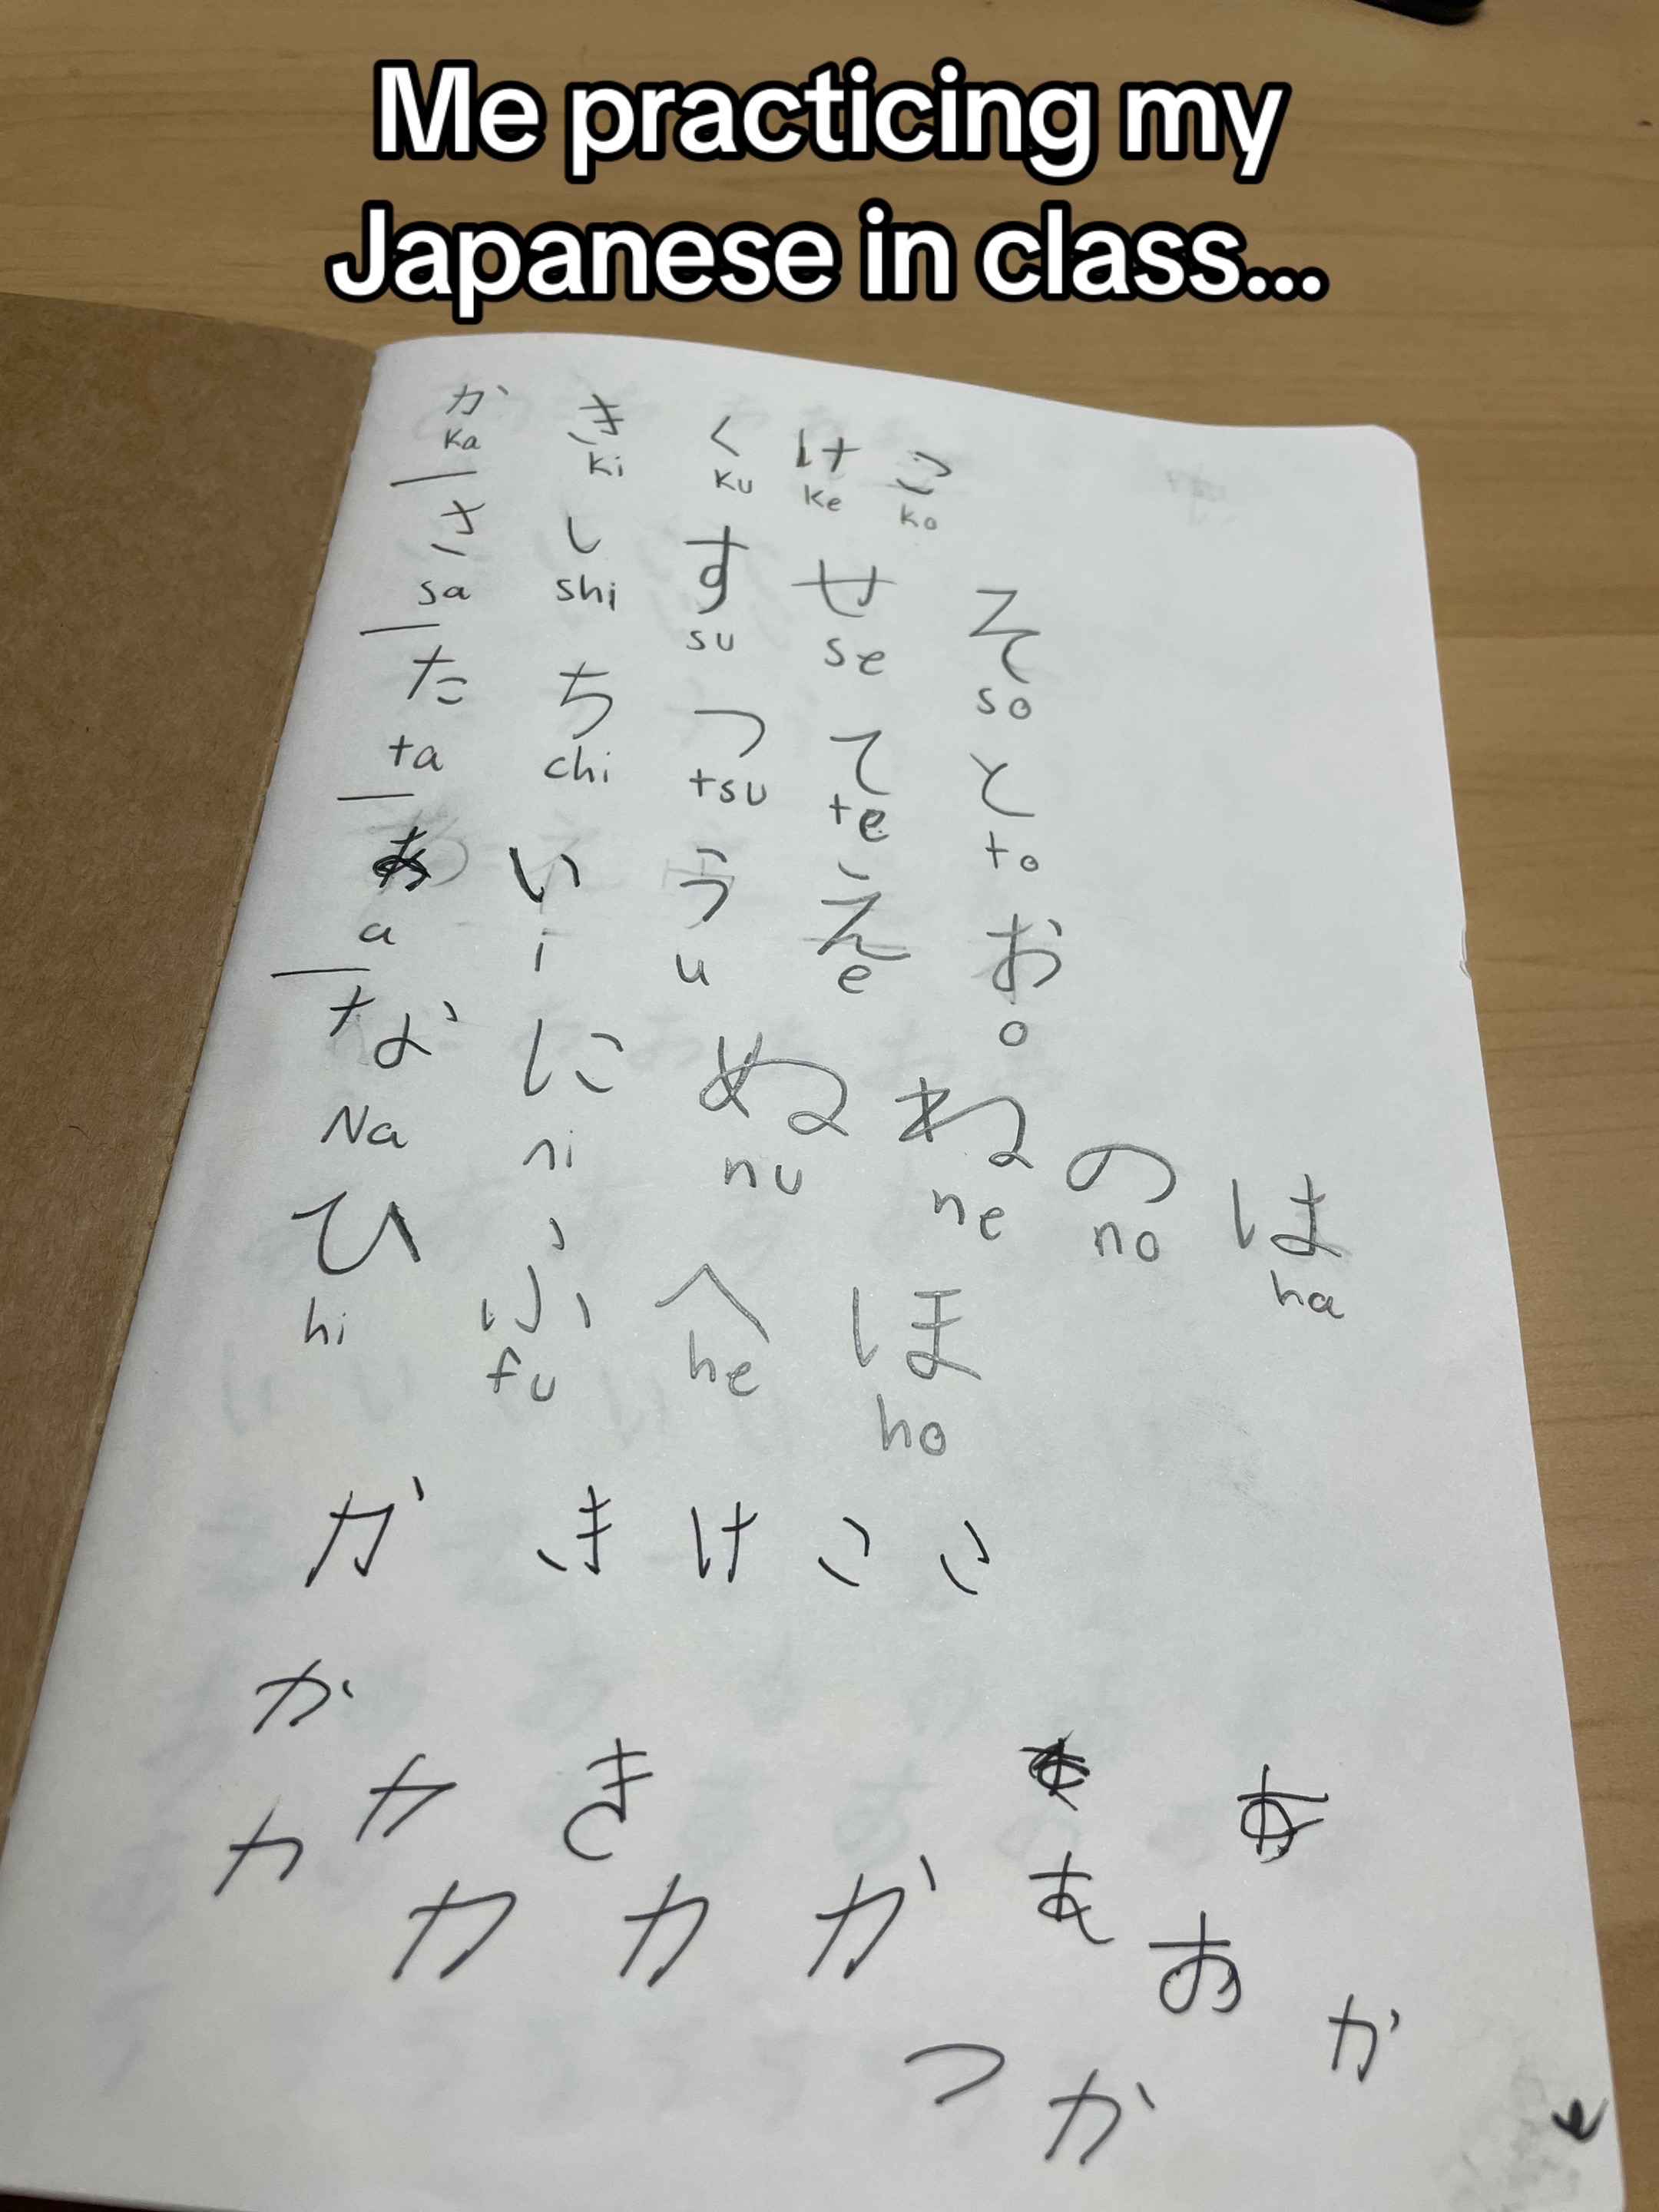 Me practicing my
Japanese in class...
か き く け こ
ka ki ku ke ko
さ し す せ そ
sa shi su se so
た ち つ て と
ta chi tsu te to
あ い う え お
a i u e o
な に ぬ ね の は
Na ni nu ne no ha
ひ ふ へ ほ
hi fu he ho
か き け こ こ
か
カ き あ
カ カ カ か あ
お
か
つ か